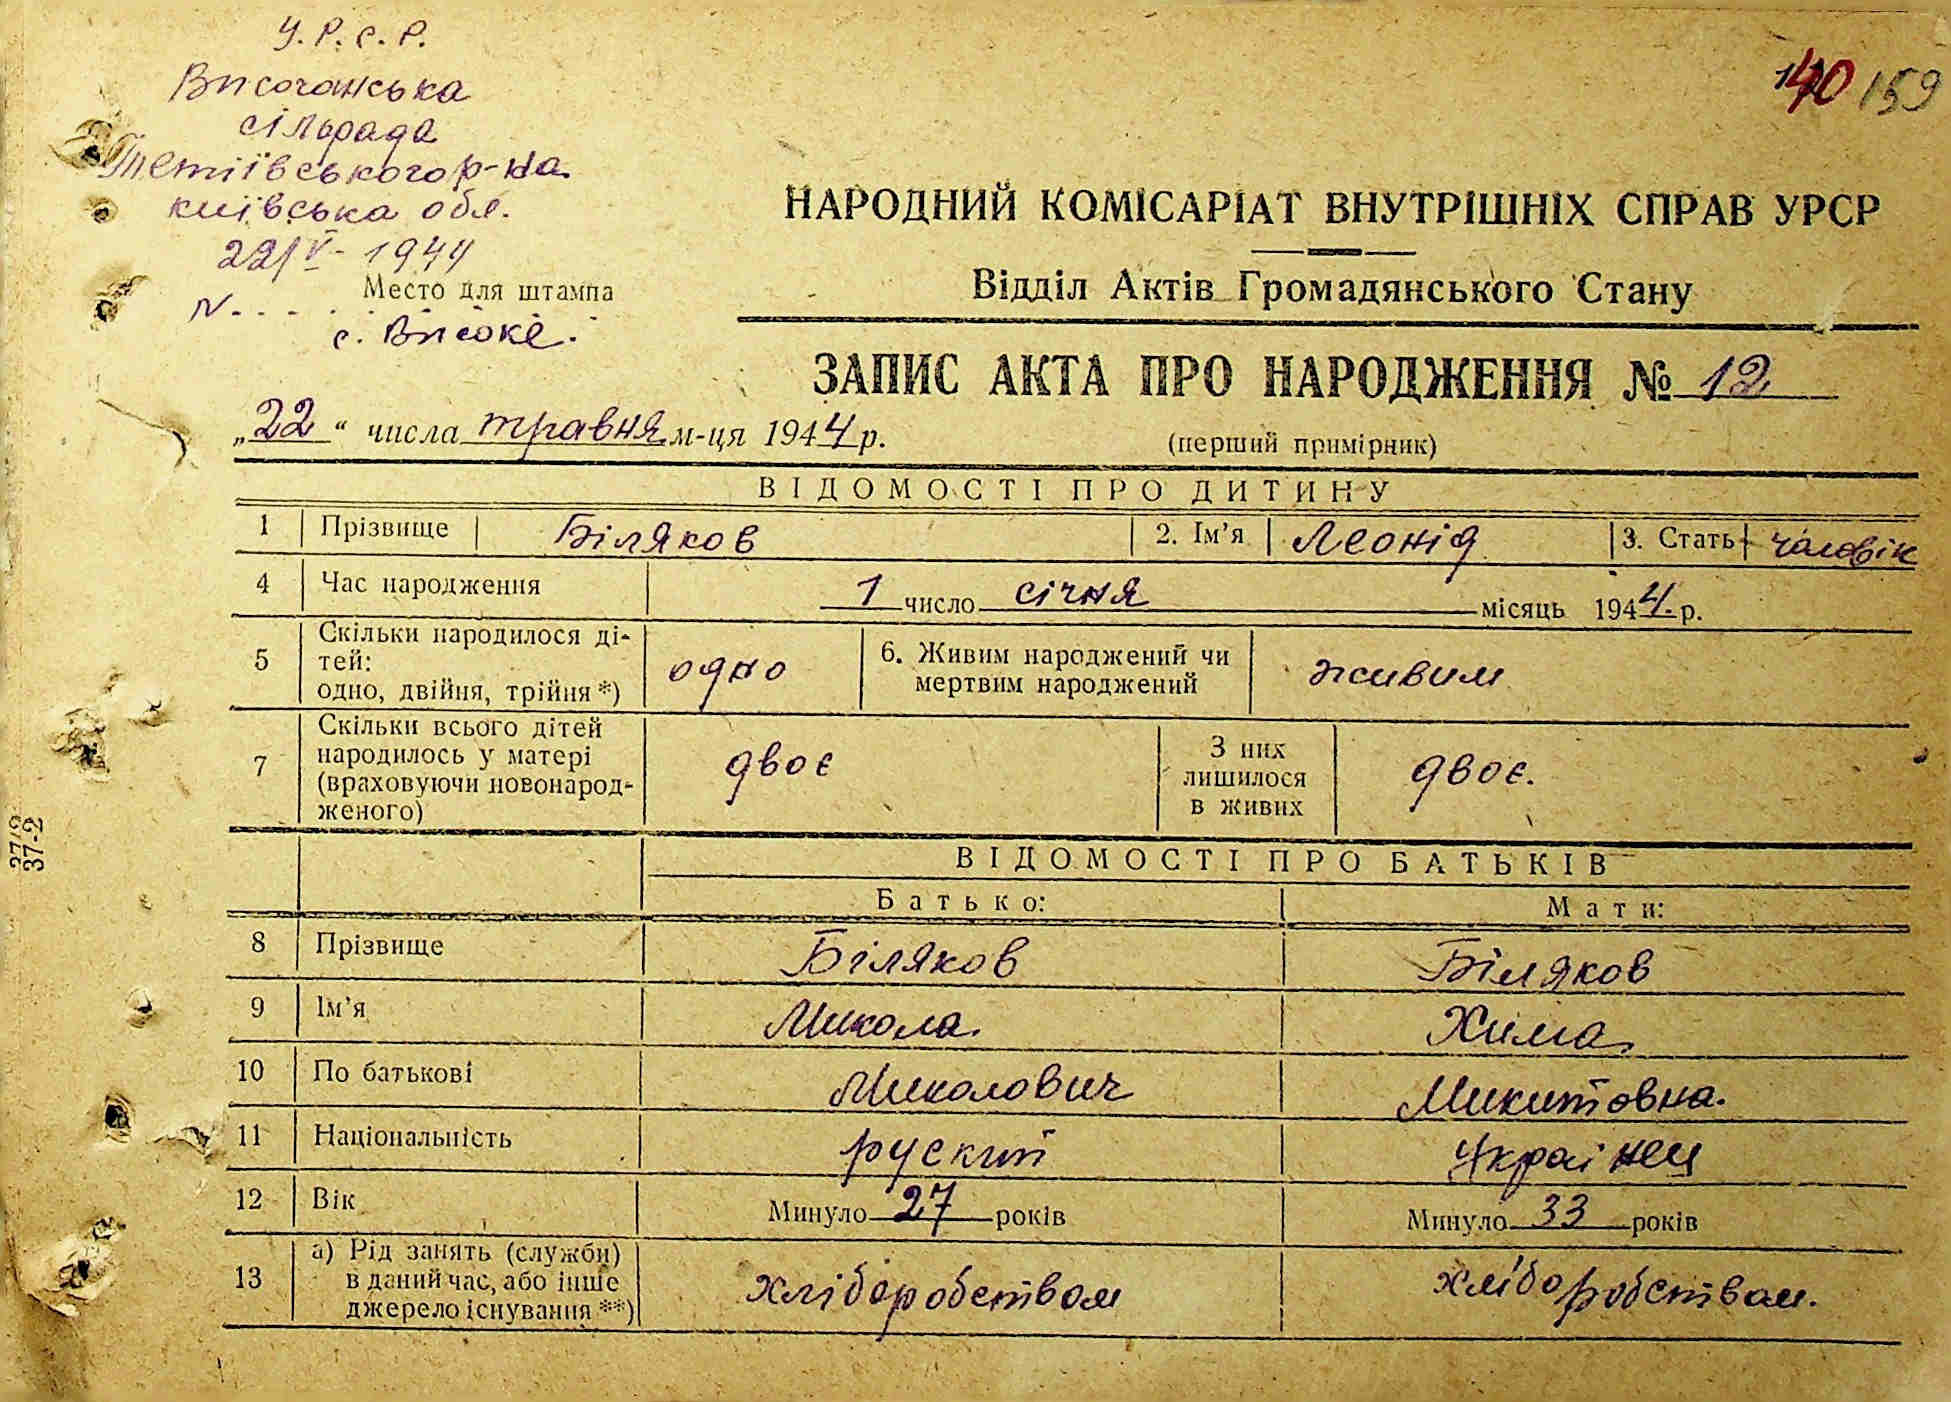 У.Р.С.Р.
Височанська
сільрада
Тетіївського р-на
київська обл.
22/V - 1944
Место для штампа
N. . . . .
с. Високе.
140 159
НАРОДНИЙ КОМІСАРІАТ ВНУТРІШНІХ СПРАВ УРСР
Відділ Актів Громадянського Стану
ЗАПИС АКТА ПРО НАРОДЖЕННЯ № 12
„22“ числа травня м-ця 1944 р.
(перший примірник)
ВІДОМОСТІ ПРО ДИТИНУ
1 Прізвище Біляков 2. Ім’я Леонід 3. Стать чаловік
4 Час народження 1 число січня місяць 1944 р.
5 Скільки народилося ді-
тей:
одно, двійня, трійня *) одно 6. Живим народжений чи
мертвим народжений живим
7 Скільки всього дітей
народилось у матері
(враховуючи новонарод-
женого) двоє З них
лишилося
в живих двоє.
ВІДОМОСТІ ПРО БАТЬКІВ
Батько: Мати:
8 Прізвище Біляков Біляков
9 Ім’я Микола. Хима
10 По батькові Миколович Микитовна.
11 Національність руский Украінец
12 Вік Минуло 27 років Минуло 33 років
13 а) Рід занять (служби)
в даний час, або інше
джерело існування **) хліборобством хліборобством.
37-2